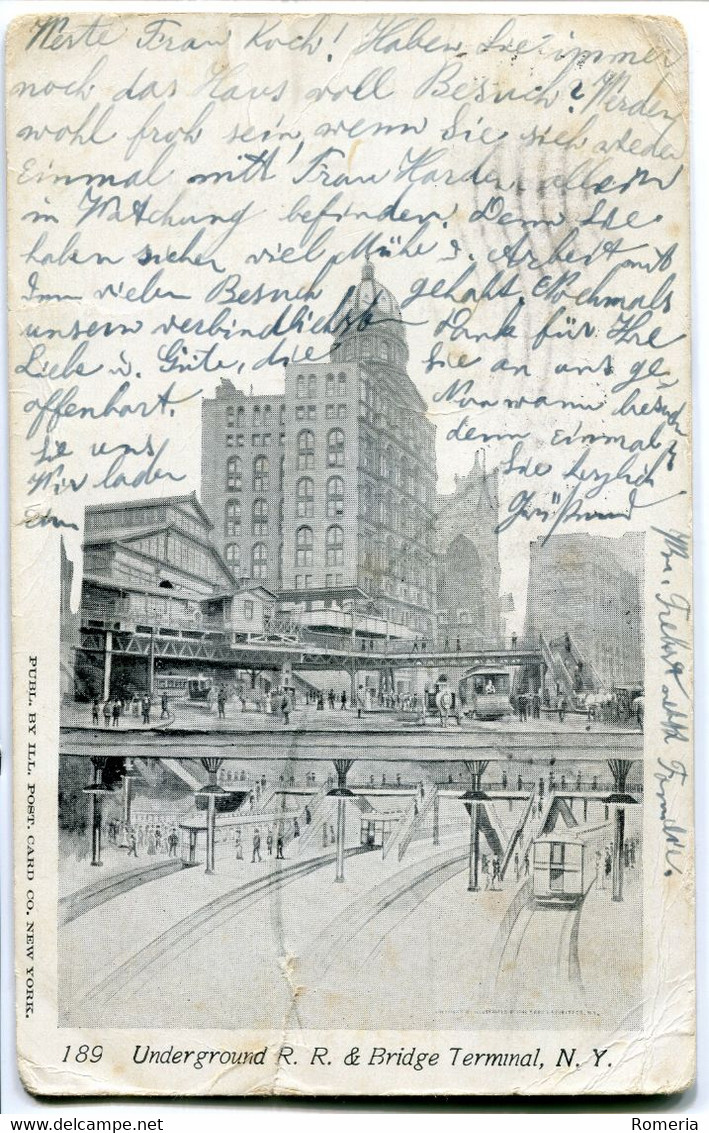 Werte Frau Koch! Haben Sie immer
noch das Haus voll Besuch? Werden
wohl froh sein, wenn Sie sich wieder
Einmal mitt Frau Harder, allein
in befinden. Denn Sie
haben sicher viel Mühe u. Arbeit mit
Dem vielen Besuch gehabt. Nochmals
unsern verbindlichsten Dank für Ihre
Liebe u. Güte, die Sie an uns ge-
offenbart. Nun wann besuchen
Sie uns denn Einmal?
Wir laden Sie herzlich
ein Grüßend
PUBL. BY ILL. POST. CARD CO. NEW YORK.
189 Underground R. R. & Bridge Terminal, N. Y.
Romeria